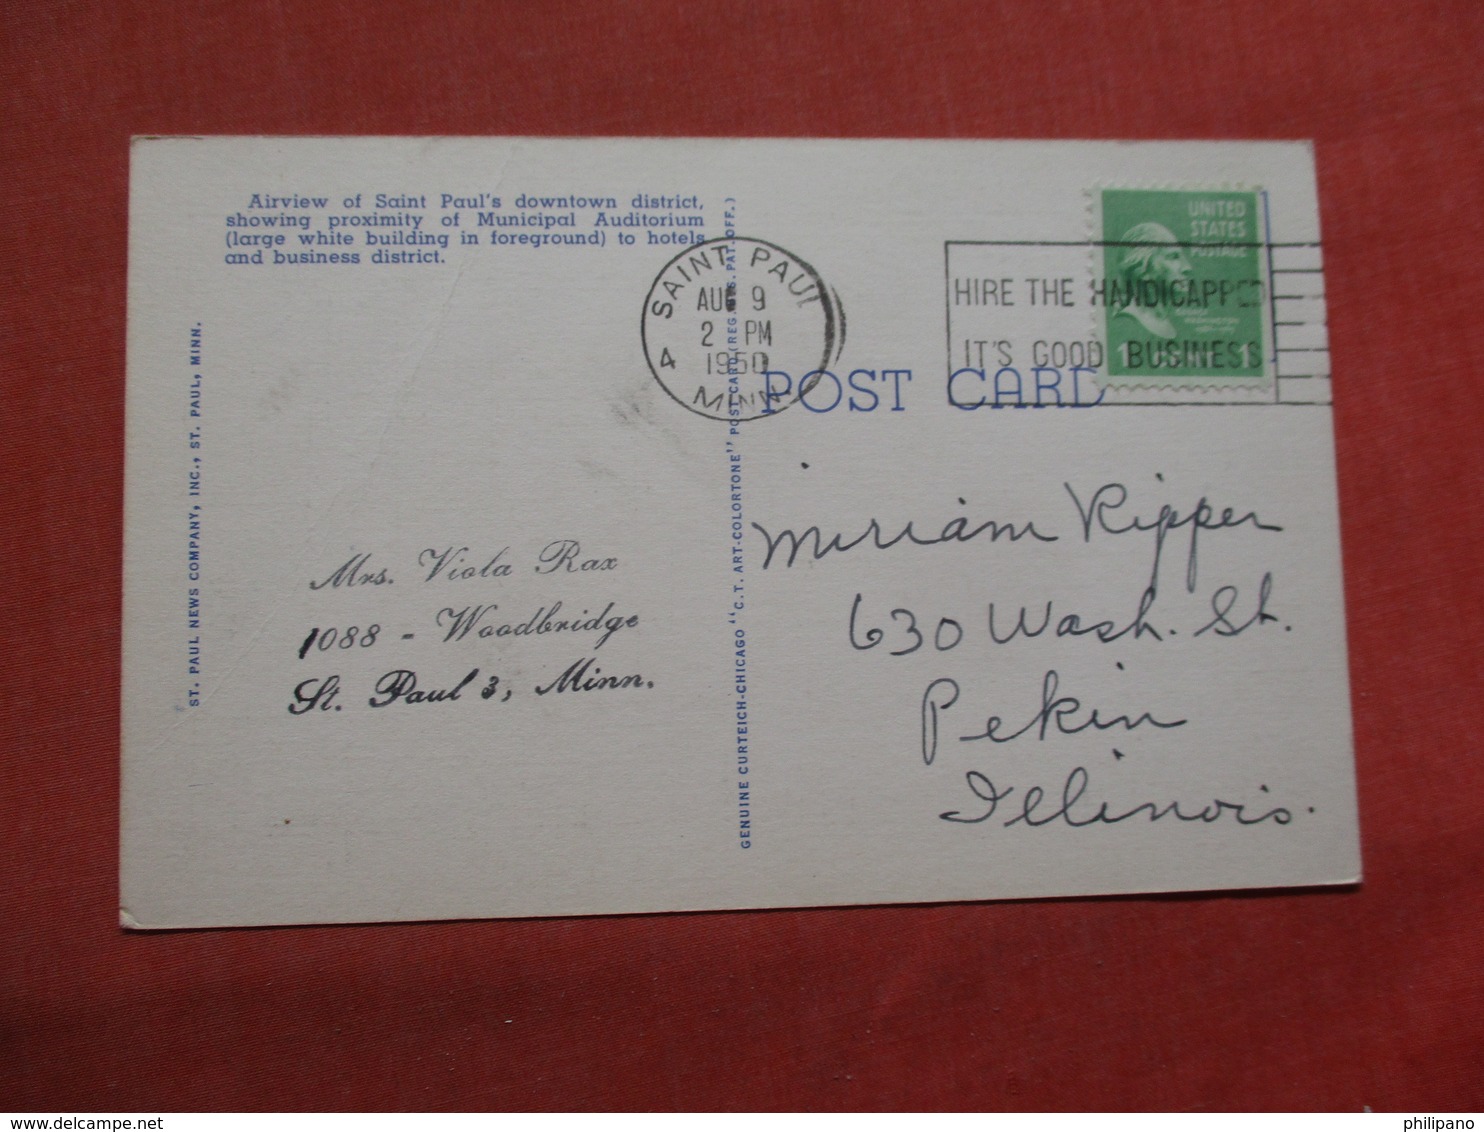 Airview of Saint Paul's downtown district,
showing proximity of Municipal Auditorium
(large white building in foreground) to hotels
and business district.
ST. PAUL NEWS COMPANY, INC., ST. PAUL, MINN.
Mrs. Viola Rax
1088 - Woodbridge
St. Paul 3, Minn.
GENUINE CURTEICH-CHICAGO "C.T. ART-COLORTONE" POST CARD (REG. U.S. PAT. OFF.)
SAINT PAUL
AUG 9
2 PM
1950
4 MINN
HIRE THE HANDICAPPED
IT'S GOOD BUSINESS
UNITED
STATES
POSTAGE
1 1
POST CARD
Miriam Ripper
630 Wash. St.
Pekin
Illinois.
www.delcampe.net
philipano